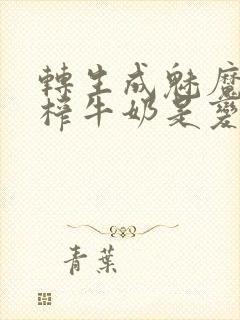 轉生成魅魔
榨牛奶是變
青葉